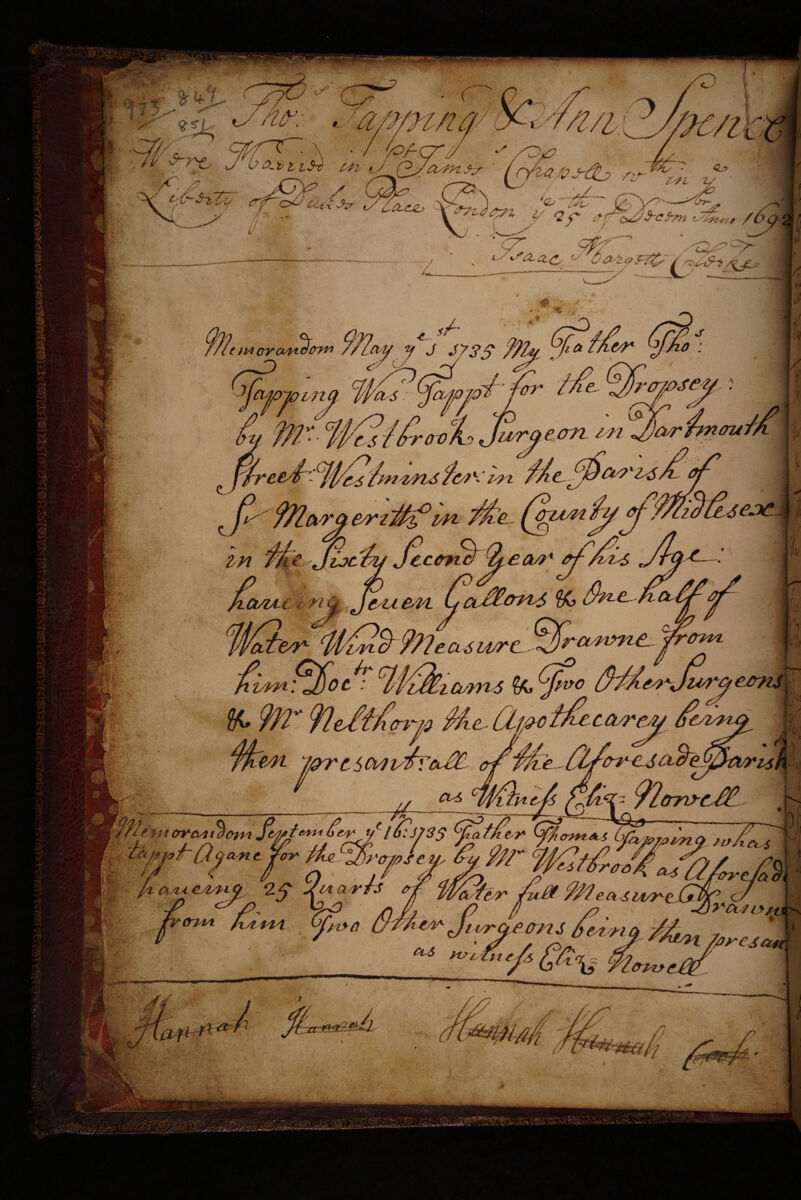 973 849
851
Tho: Tapping & Ann Spence
Were Married in St James Chapell wthin ye
Liberty of Dukes Place London ye 25th of Decembr Anno 1692
Isaac Hargett Clerke
Memorandom May ye 1st 1735 My Father Thos:
Tapping Was Tappt for the Dropsey:
by Mr. Westbrook Surgeon in Dartmouth
Street: Westminster: in the Parish of
St Margeritts in the County of Midlesex
in the Sixty Second Year of his Age:
haueing Seuen Gallons & One half of
Water Wind Measure Drawne from
him: Doctr: Williams & Two Other Surgeons
& Mr Nelthorp the Apothecarey being
then presant: all of the Aforesade Parish
as Witness Eliz: Nowell
Memorandom September ye 16: 1735 Father Thomas Tapping whas
tappt Agane for the Dropsey by Mr Westbrook as Aforesad
haueing 25 Quarts of Water full Measure Drawne
from him Two Other Surgeons being then presan
as witness Eliz: Nowell
Hannah Hannah Hannah Hannah Cook.